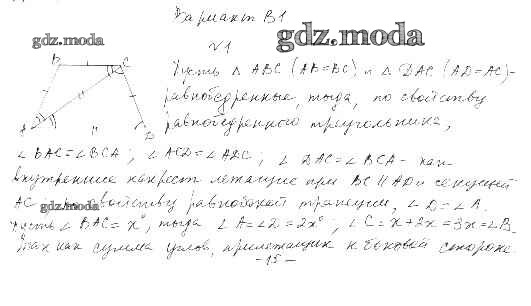 Вариант В1
gdz.moda
gdz.moda
√1
B C
A D
Пусть △ ABC (AB=BC) и △ DAC (AD=AC)-
равнобедренные, тогда, по свойству
равнобедренного треугольника,
∠ BAC = ∠ BCA; ∠ ACD = ∠ ADC; ∠ DAC = ∠ BCA - как
внутренние накрест лежащие при BC || AD и секущей
AC свойству равнобокой трапеции, ∠ D = ∠ A.
gdz.moda
Пусть ∠ BAC = x°, тогда ∠ A = ∠ D = 2x°; ∠ C = x + 2x = 3x = ∠ B.
Так как сумма углов, прилежащих к боковой стороне
- 15 -